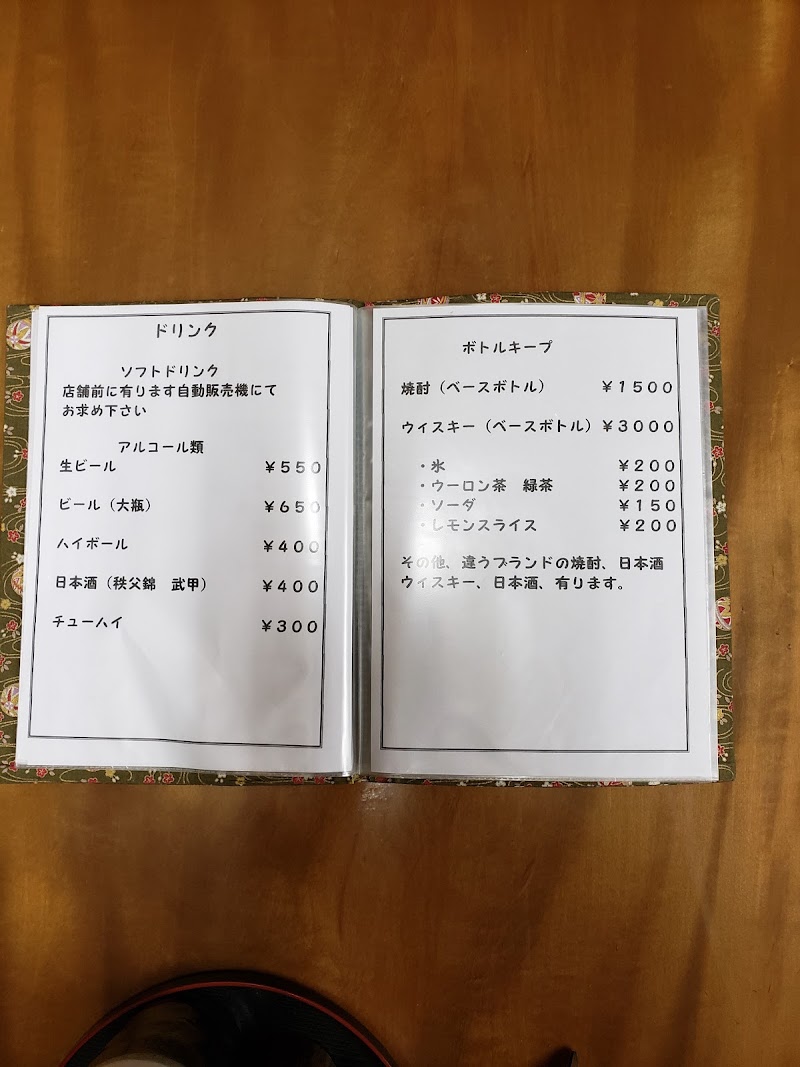 ドリンク
ソフトドリンク
店舗前に有ります自動販売機にて
お求め下さい
アルコール類
生ビール ￥５５０
ビール（大瓶） ￥６５０
ハイボール ￥４００
日本酒（秩父錦　武甲） ￥４００
チューハイ ￥３００
ボトルキープ
焼酎（ベースボトル） ￥１５００
ウィスキー（ベースボトル）￥３０００
・氷 ￥２００
・ウーロン茶　緑茶 ￥２００
・ソーダ ￥１５０
・レモンスライス ￥２００
その他、違うブランドの焼酎、日本酒
ウィスキー、日本酒、有ります。